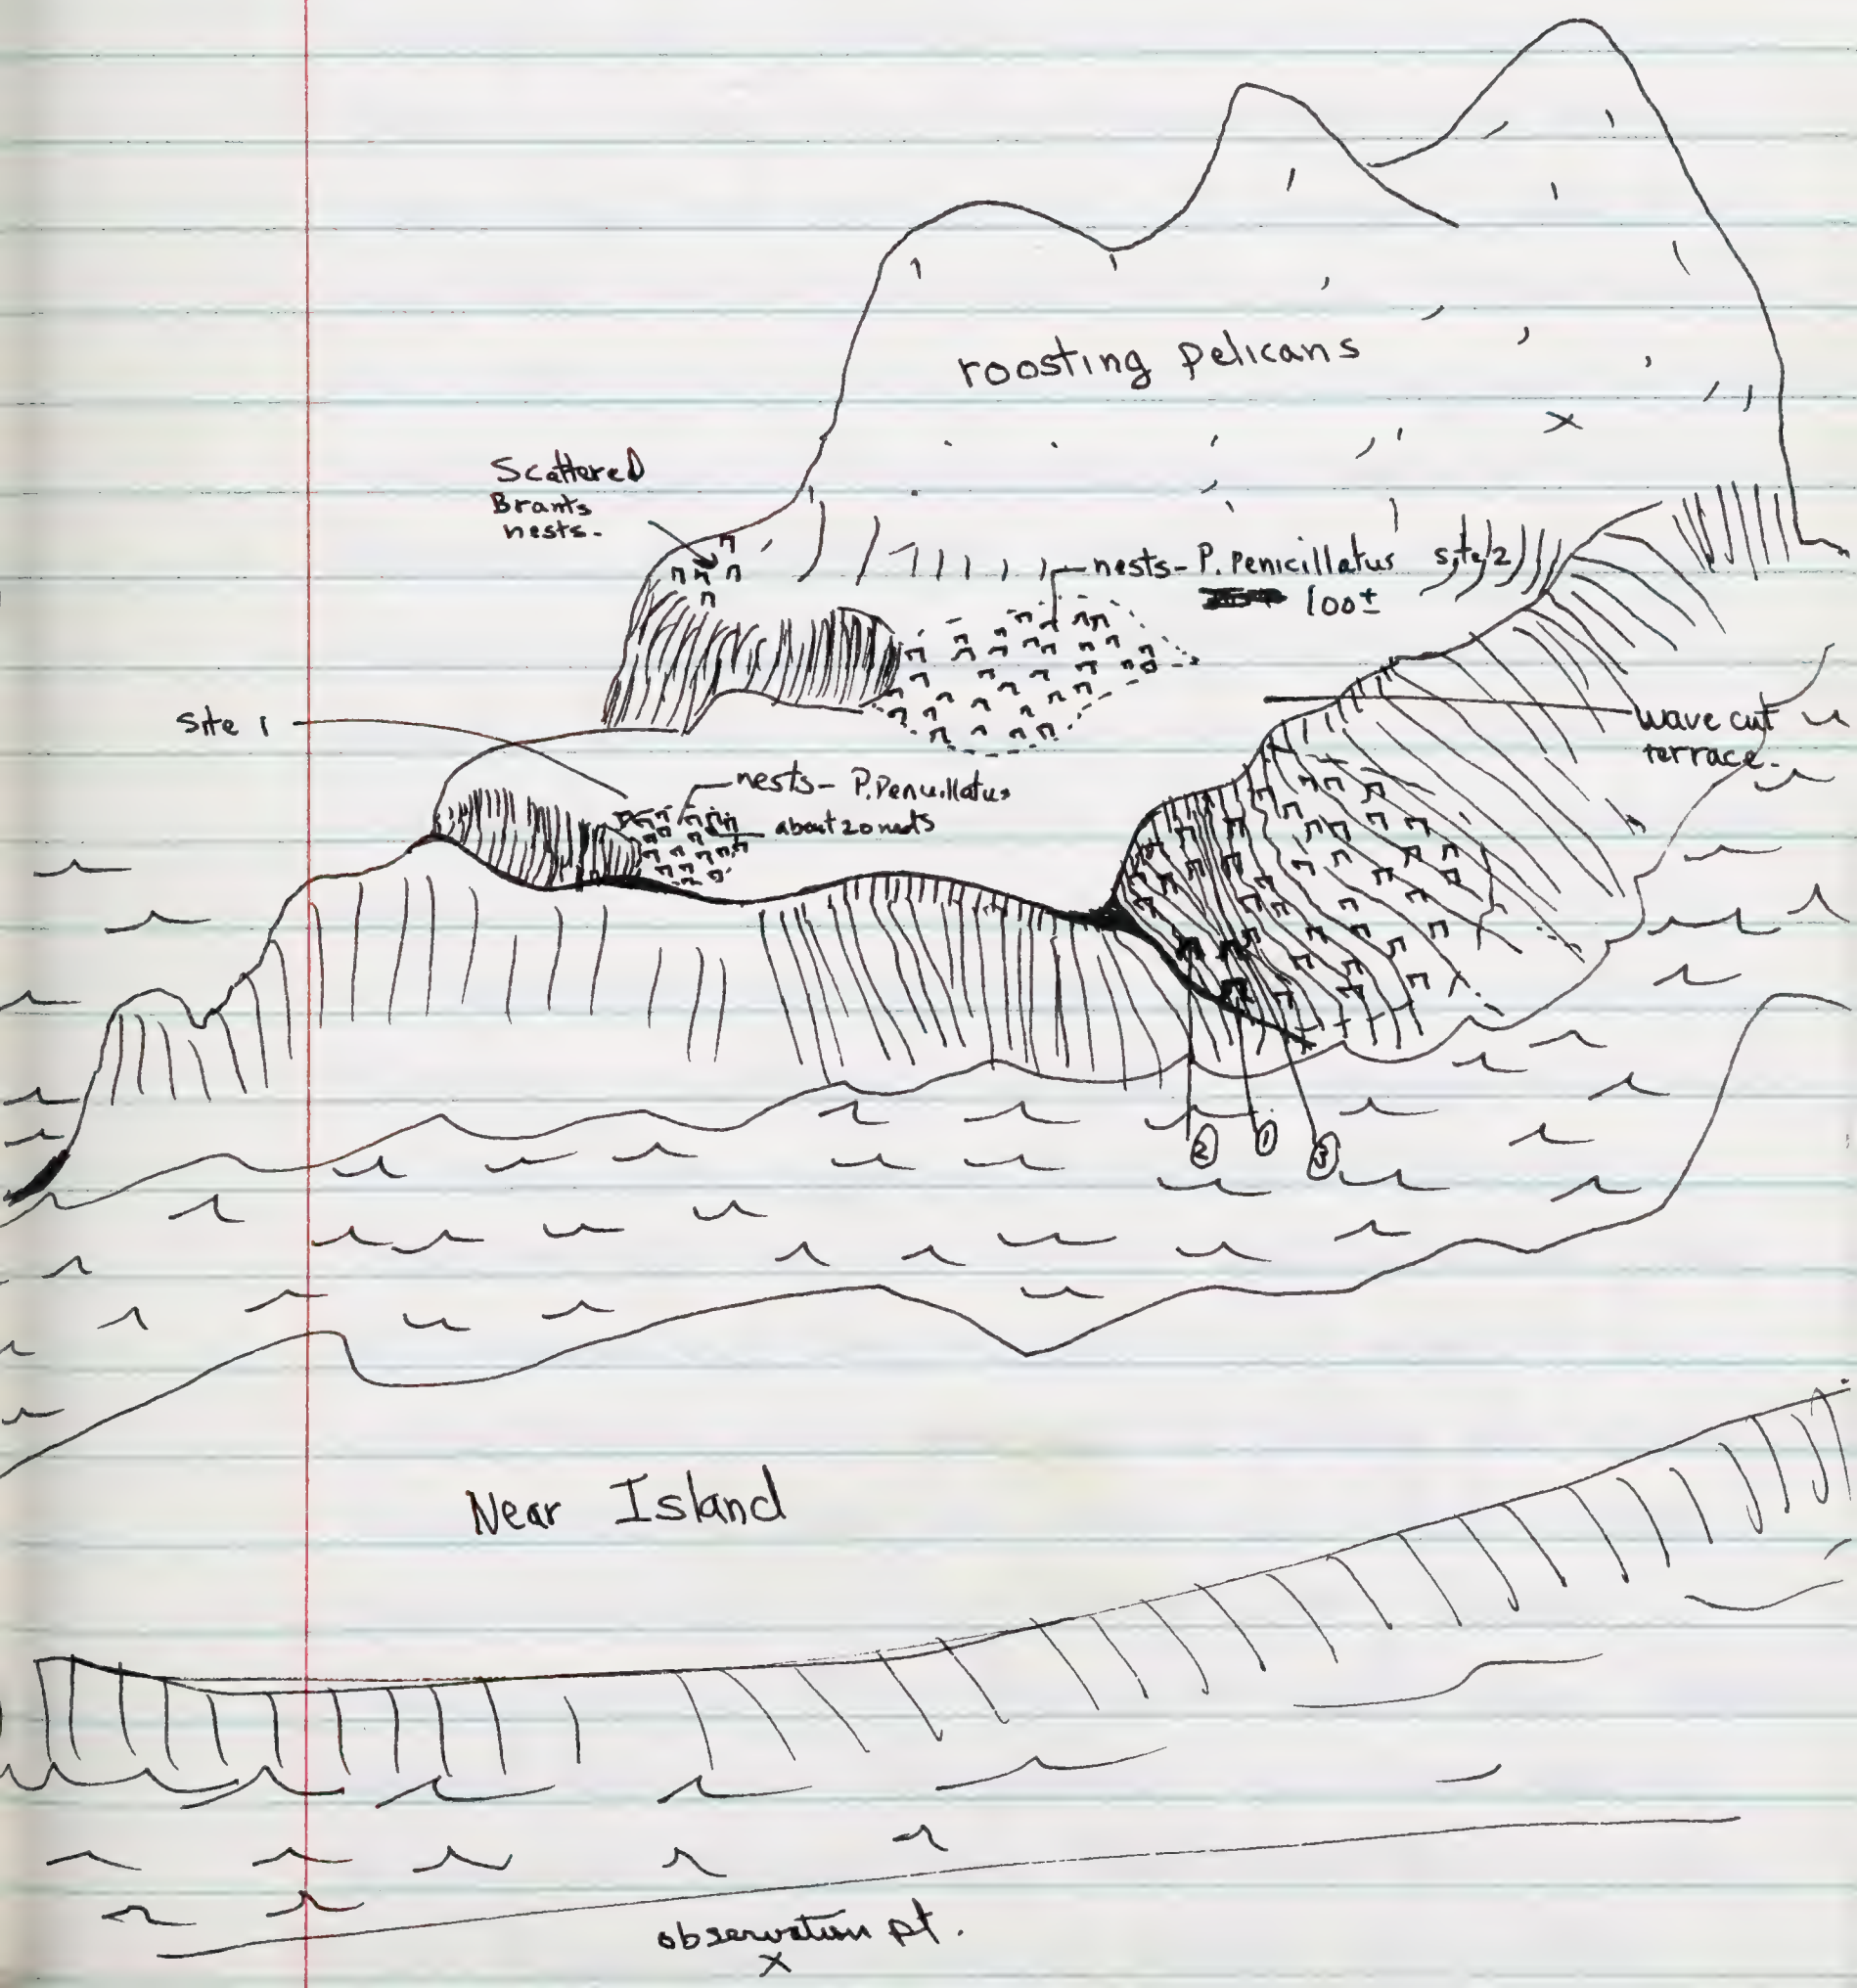 roosting pelicans
Scattered
Brants
nests-
nests- P. Penicillatus site 2
100±
Site 1
wave cut
terrace.
nests- P. Penicillatus
about 20 nests
② ① ③
Near Island
observation pt.
x